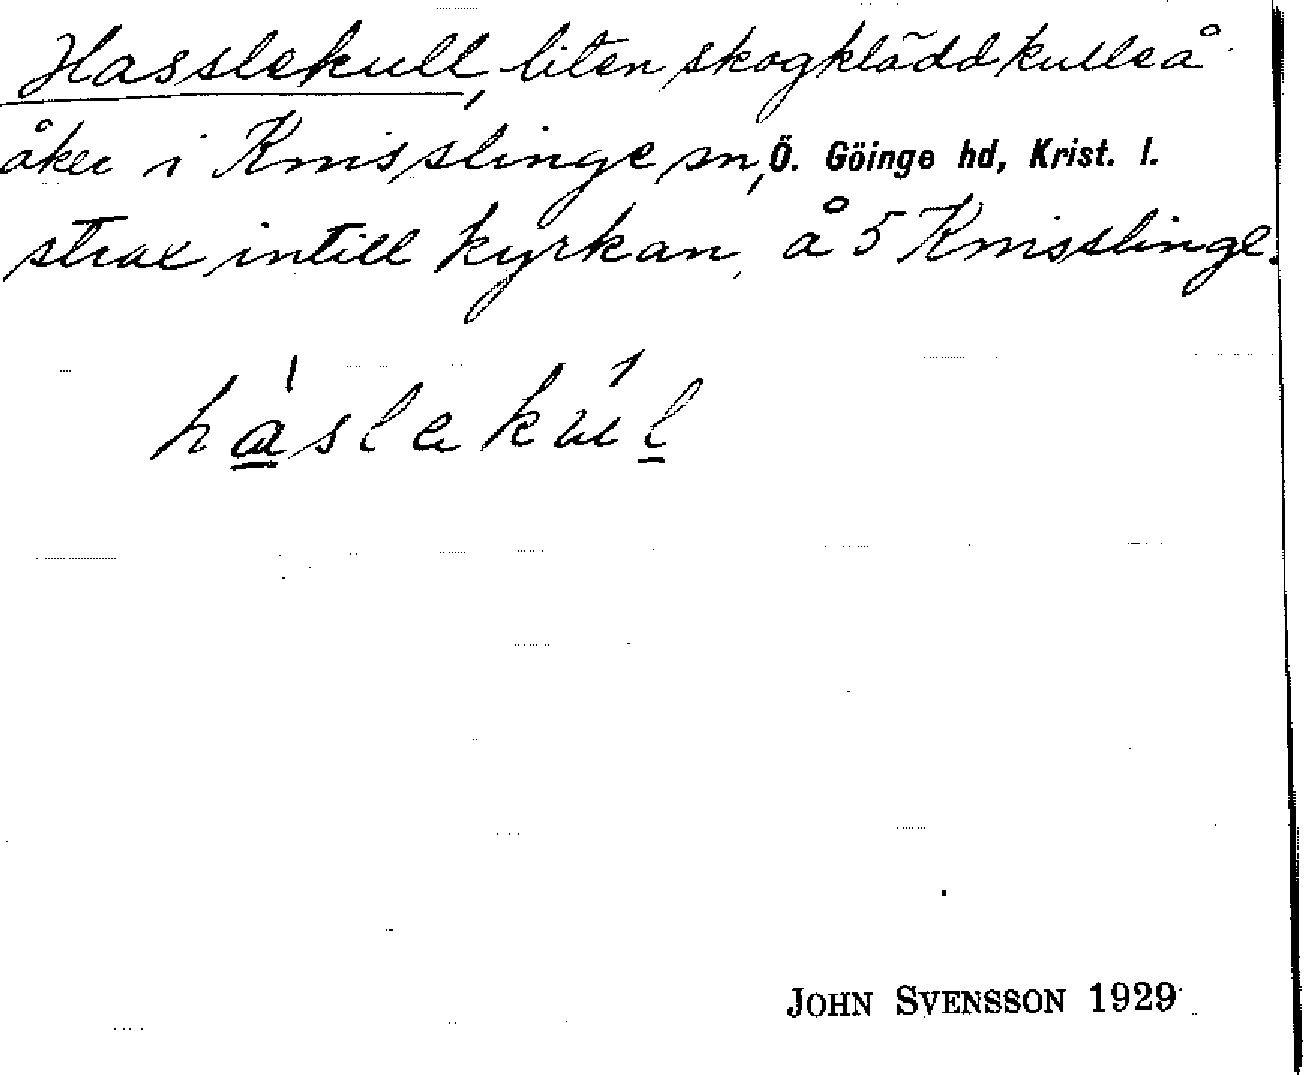 Hasslekull, liten skogklädd kulle å
åker i Knisslinge sn, Ö. Göinge hd, Krist. l.
strax intill kyrkan, å 5 Knisslinge.
haslekul
JOHN SVENSSON 1929